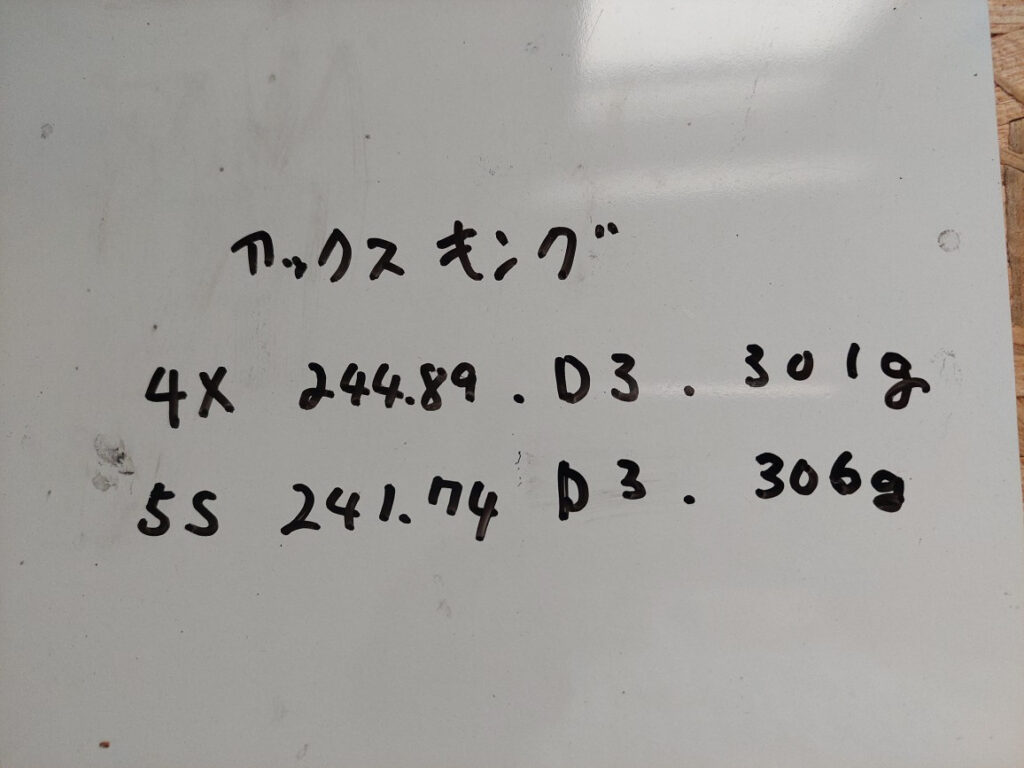 アックス キング
4X 244.89 . D3 . 301g
5S 241.74 D3 . 306g